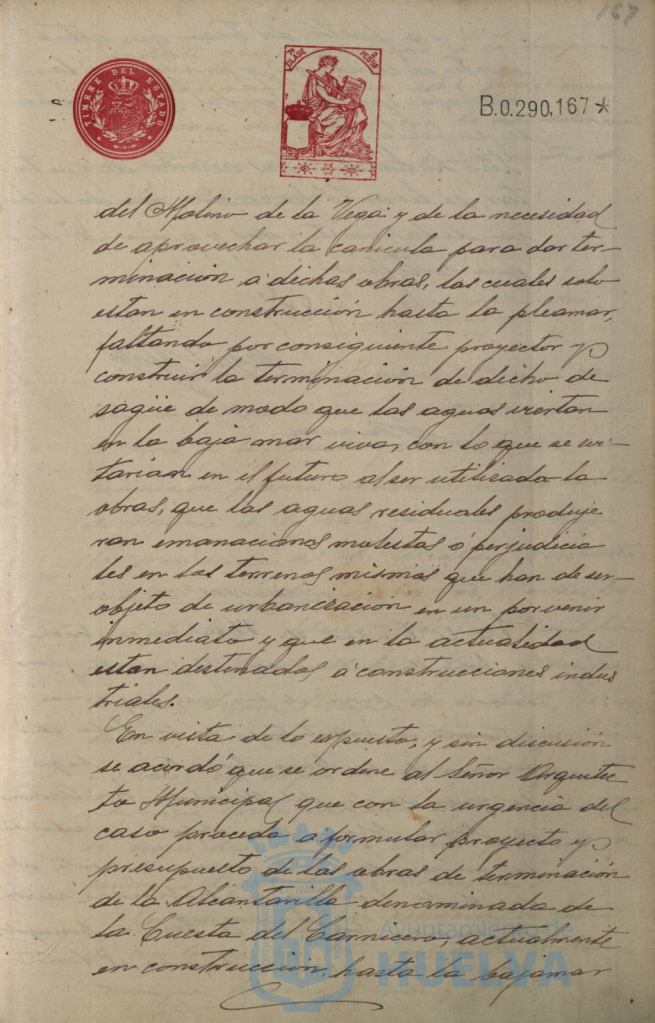 167
TIMBRE DEL ESTADO
7ª CLASE
2 PESETAS
B.0.290,167*
del Molino de la Vega y de la necesidad
de aprovechar la canicula para dar ter-
minación á dichas obras, las cuales solo
estan en construcción hasta la pleamar,
faltando por consiguiente proyectar y
construir la terminación de dicho de
sagüe de modo que las aguas viertan
en la baja mar viva, con lo que se evi-
tarian en el futuro al ser utilizada la
obras, que las aguas residuales produje
ran emanaciones molestas ó perjudicia
les en los terrenos mismos que han de ser
objeto de urbanización en un porvenir
inmediato y que en la actualidad
estan destinados á construcciones indus
triales.
En vista de lo expuesto, y sin discusión
se acordó que se ordene al Señor Arquitec
to Municipal que con la urgencia del
caso proceda a formular proyecto y
presupuesto de las obras de terminación
de la Alcantarilla denominada de
la Cuesta del Carnicero, actualmente
en construcción, hasta la bajamar
Ayuntamiento de
HUELVA